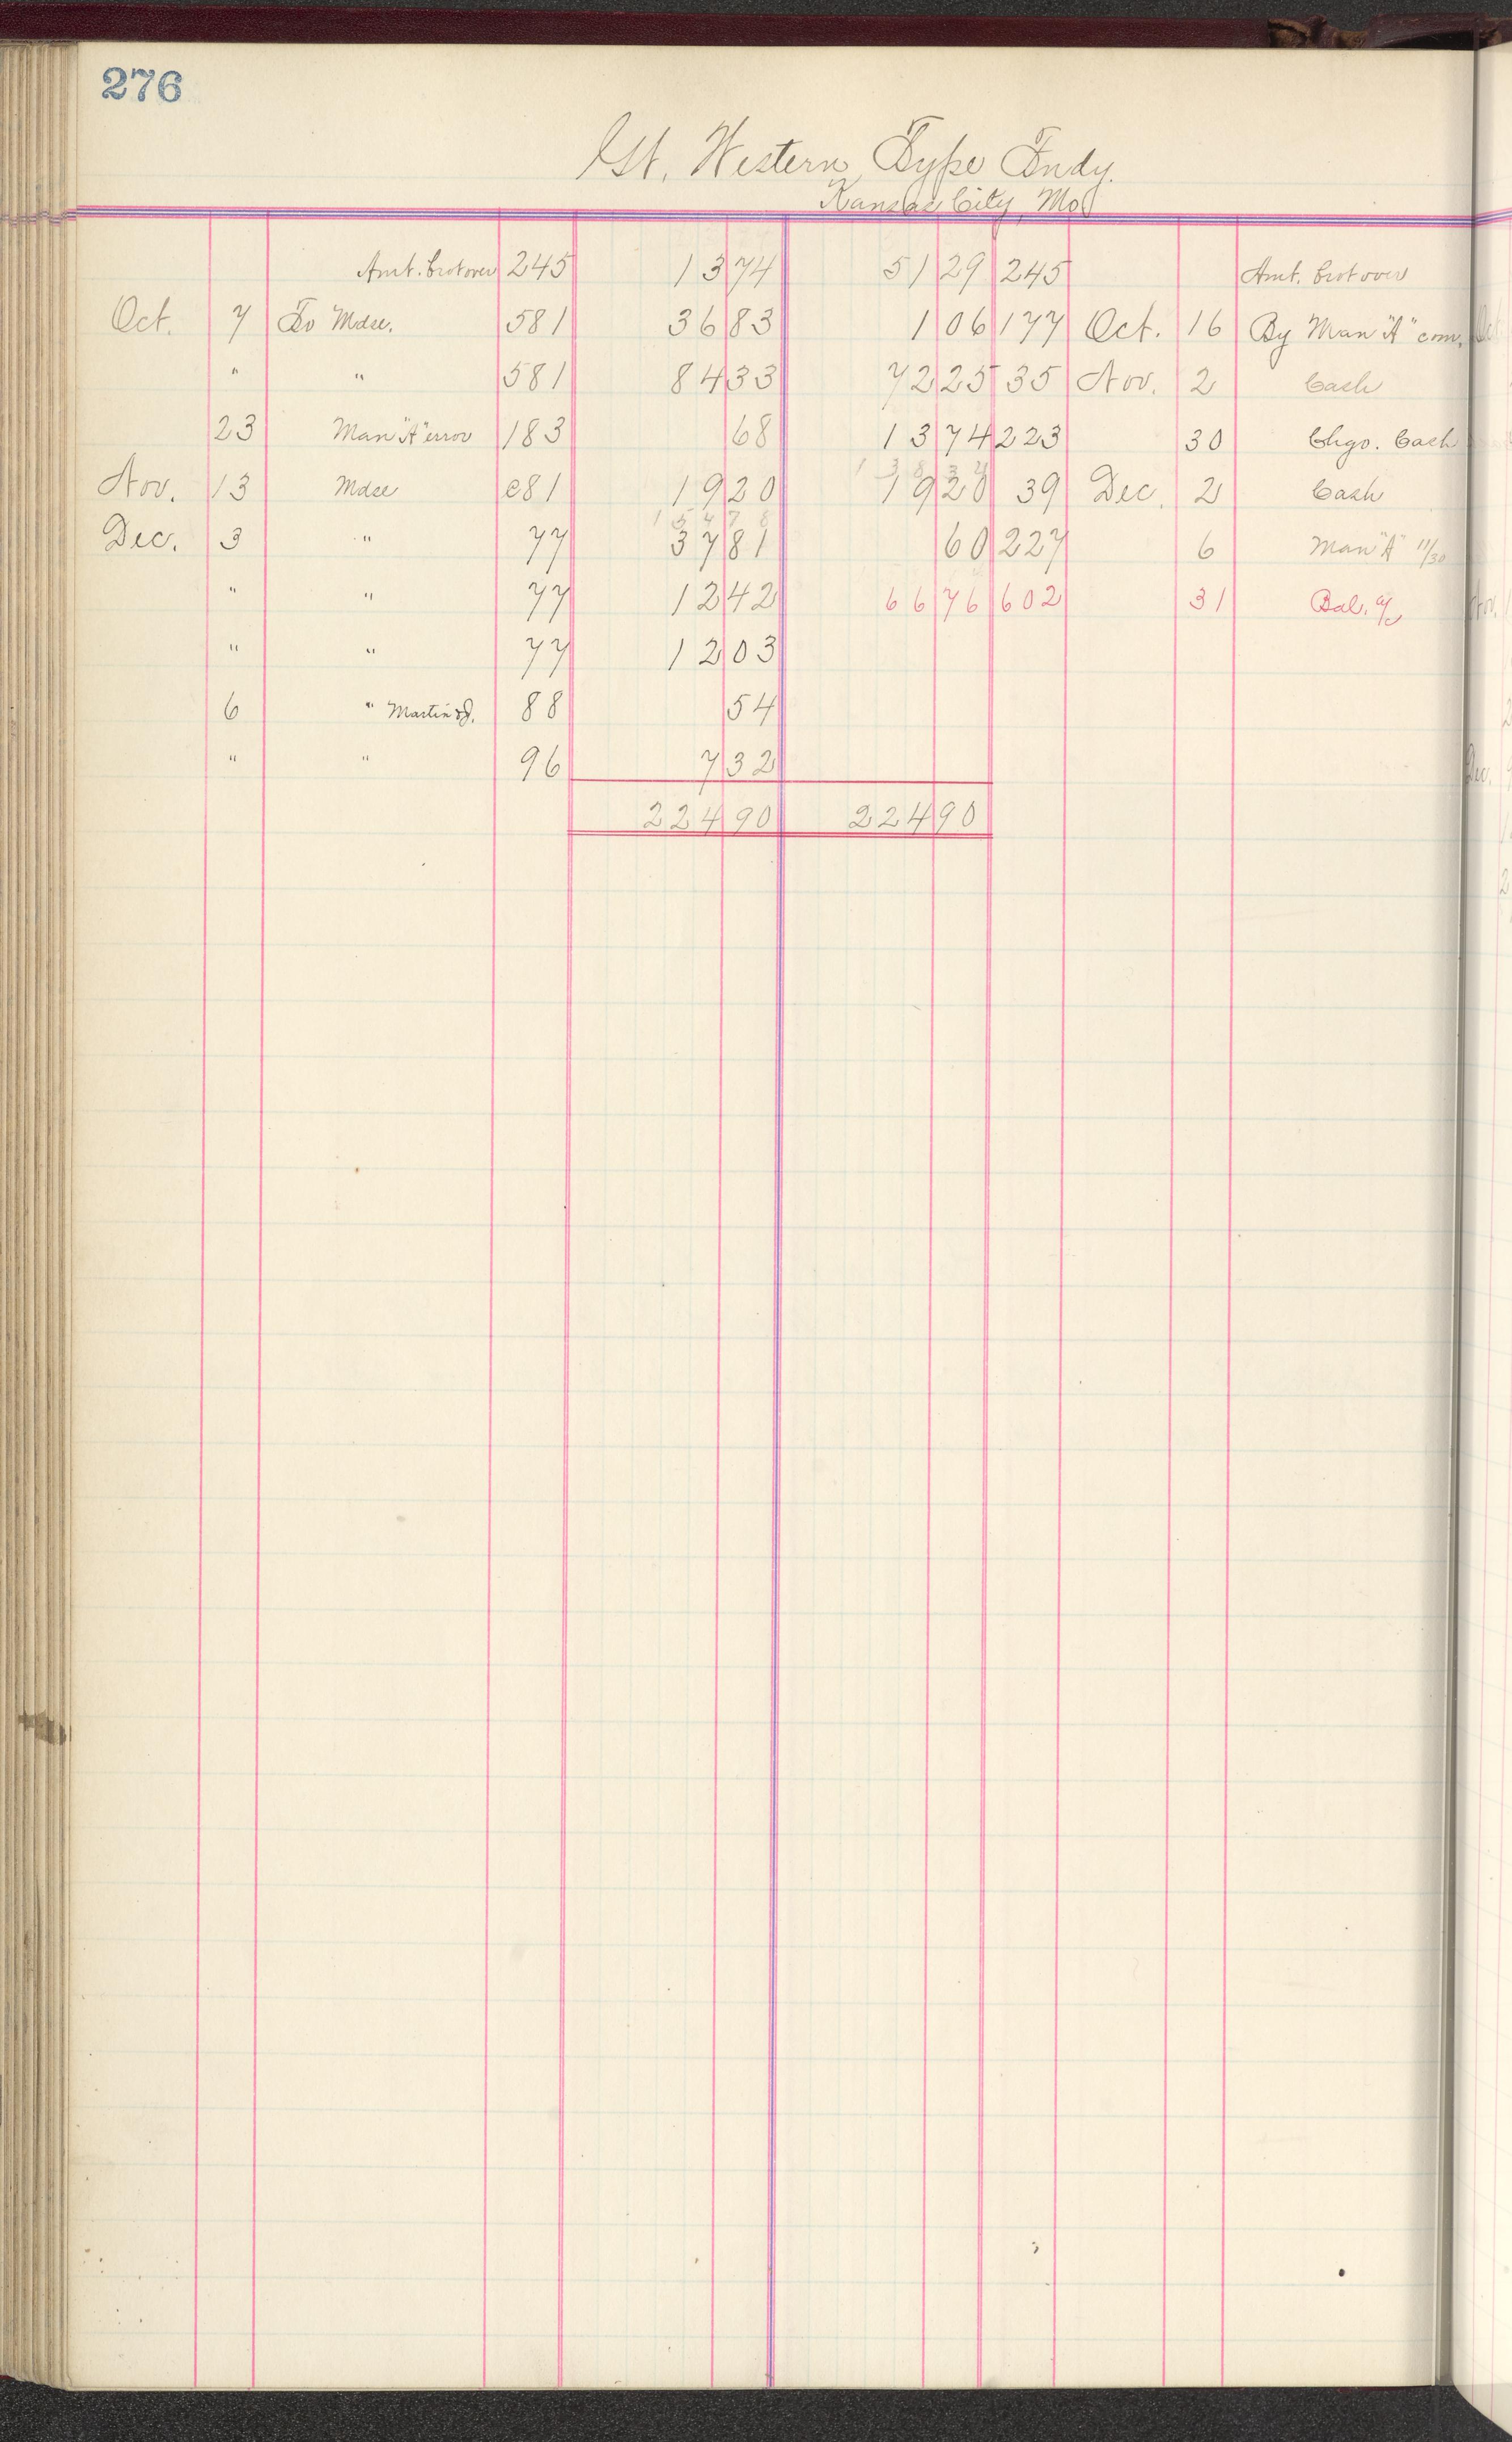 276
Gt. Western Type Fndy.
Kansas City, Mo
Amt. brot over 245 13 74 51 29 245 Amt. brot over
Oct. 7 To Mdse. 581 36 83 1 06 177 Oct. 16 By Man "A" com.
" " 581 84 33 72 25 35 Nov. 2 Cash
23 Man "A" error 183 68 13 74 223 30 Chgo. Cash
1 3 8 3 4
Nov. 13 Mdse c81 19 20 19 20 39 Dec. 2 Cash
1 5 4 7 8
Dec. 3 " 77 37 81 60 227 6 Man "A" 11/30
" " 77 12 42 66 76 602 31 Bal. a/c
" " 77 12 03
6 " Martin 88 54
" " 96 7 32
224 90 224 90